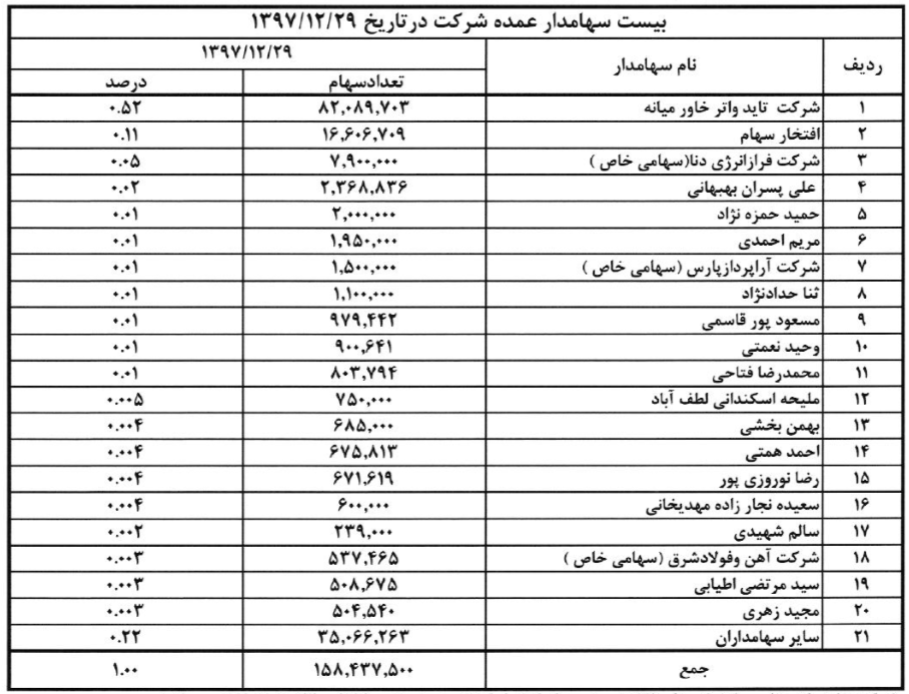 بیست سهامدار عمده شرکت در تاریخ ۱۳۹۷/۱۲/۲۹
ردیف نام سهامدار ۱۳۹۷/۱۲/۲۹
تعدادسهام درصد
۱ شرکت تاید واتر خاور میانه ۸۲,۰۸۹,۷۰۳ ۰.۵۲
۲ افتخار سهام ۱۶,۶۰۶,۷۰۹ ۰.۱۱
۳ شرکت فرازانرژی دنا(سهامی خاص ) ۷,۹۰۰,۰۰۰ ۰.۰۵
۴ علی پسران بهبهانی ۲,۳۶۸,۸۳۶ ۰.۰۲
۵ حمید حمزه نژاد ۲,۰۰۰,۰۰۰ ۰.۰۱
۶ مریم احمدی ۱,۹۵۰,۰۰۰ ۰.۰۱
۷ شرکت آراپردازپارس (سهامی خاص ) ۱,۵۰۰,۰۰۰ ۰.۰۱
۸ ثنا حدادنژاد ۱,۱۰۰,۰۰۰ ۰.۰۱
۹ مسعود پور قاسمی ۹۷۹,۴۴۲ ۰.۰۱
۱۰ وحید نعمتی ۹۰۰,۶۴۱ ۰.۰۱
۱۱ محمدرضا فتاحی ۸۰۳,۷۹۴ ۰.۰۱
۱۲ ملیحه اسکندانی لطف آباد ۷۵۰,۰۰۰ ۰.۰۰۵
۱۳ بهمن بخشی ۶۸۵,۰۰۰ ۰.۰۰۴
۱۴ احمد همتی ۶۷۵,۸۱۳ ۰.۰۰۴
۱۵ رضا نوروزی پور ۶۷۱,۶۱۹ ۰.۰۰۴
۱۶ سعیده نجار زاده مهدیخانی ۶۰۰,۰۰۰ ۰.۰۰۴
۱۷ سالم شهیدی ۲۳۹,۰۰۰ ۰.۰۰۲
۱۸ شرکت آهن وفولادشرق (سهامی خاص ) ۵۳۷,۴۶۵ ۰.۰۰۳
۱۹ سید مرتضی اطیابی ۵۰۸,۶۷۵ ۰.۰۰۳
۲۰ مجید زهری ۵۰۴,۵۴۰ ۰.۰۰۳
۲۱ سایر سهامداران ۳۵,۰۶۶,۲۶۳ ۰.۲۲
جمع ۱۵۸,۴۳۷,۵۰۰ ۱.۰۰